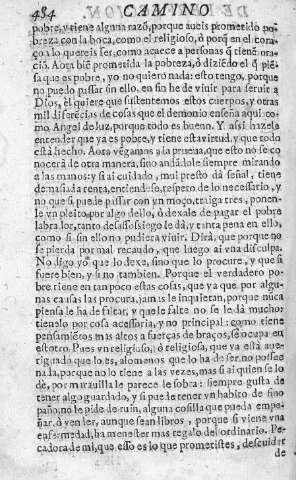 484 CAMINO
pobre, y tiene alguna razõ, porque aueis prometido po-
breza con la boca, como el religioso, ó porq̃ en el cora-
çon lo quereis ser, como acaece a personas q̃ tienẽ ora-
ció. Aora biẽ prometida la pobreza, ò diziẽdo el q̃ piẽ-
sa que es pobre, yo no quiero nada: esto tengo, porque
no puedo passar sin ello, en fin he de viuir para seruir a
Dios, èl quiere que sustentemos estos cuerpos, y otras
mil diferẽcias de cosas que el demonio enseña aqui co-
mo Angel de luz, porque todo es bueno. Y assi hazele
entender que ya es pobre, y tiene esta virtud, y que todo
està hecho. Aora vẽgamos a la prueua, que esto no se co-
nocerà de otra manera, sino andãdole siempre mirando
a las manos: y si ai cuidado, mui presto dà señal, tiene
demasiada renta, entiendese, respeto de lo necessario, y
no que si puede passar con vn moço, traiga tres, ponen-
le vn pleito, por algo dello, ò dexale de pagar el pobre
labrador, tanto desassossiego le dà, y tanta pena en ello,
como si sin ello no pudiera viuir. Dirà, que porque no
se pierda por mal recaudo, que luego ai vna disculpa.
No digo yo que lo dexe, sino que lo procure, y que si
fuere bien, y si no tambien. Porque el verdadero po-
bre tiene en tan poco estas cosas, que ya que por algu-
nas causas las procura, jamas le inquietan, porque nũca
piensa le ha de faltar, y que le falte no se le dà mucho:
tienelo por cosa acessoria, y no principal: como tiene
pensamiẽtos mas altos a fuerças de braços, se ocupa en
estotro. Pues vn religioso, ó religiosa, que ya està aue-
riguado que lo es, alomenos que lo ha de ser, no possee
nada, porque no lo tiene a las vezes, mas si ai quien se lo
dè, por marauilla le parece le sobra: siempre gusta de
tener algo guardado, y si puede tener vn habito de fino
paño, no le pide de ruin, alguna cosilla que pueda empe-
ñar, ò vender, aunque sean libros, porque si viene vna
enfermedad, ha menester mas regalo del ordinario. Pe-
cadora de mi, que esso es lo que prometistes, descuidar
de